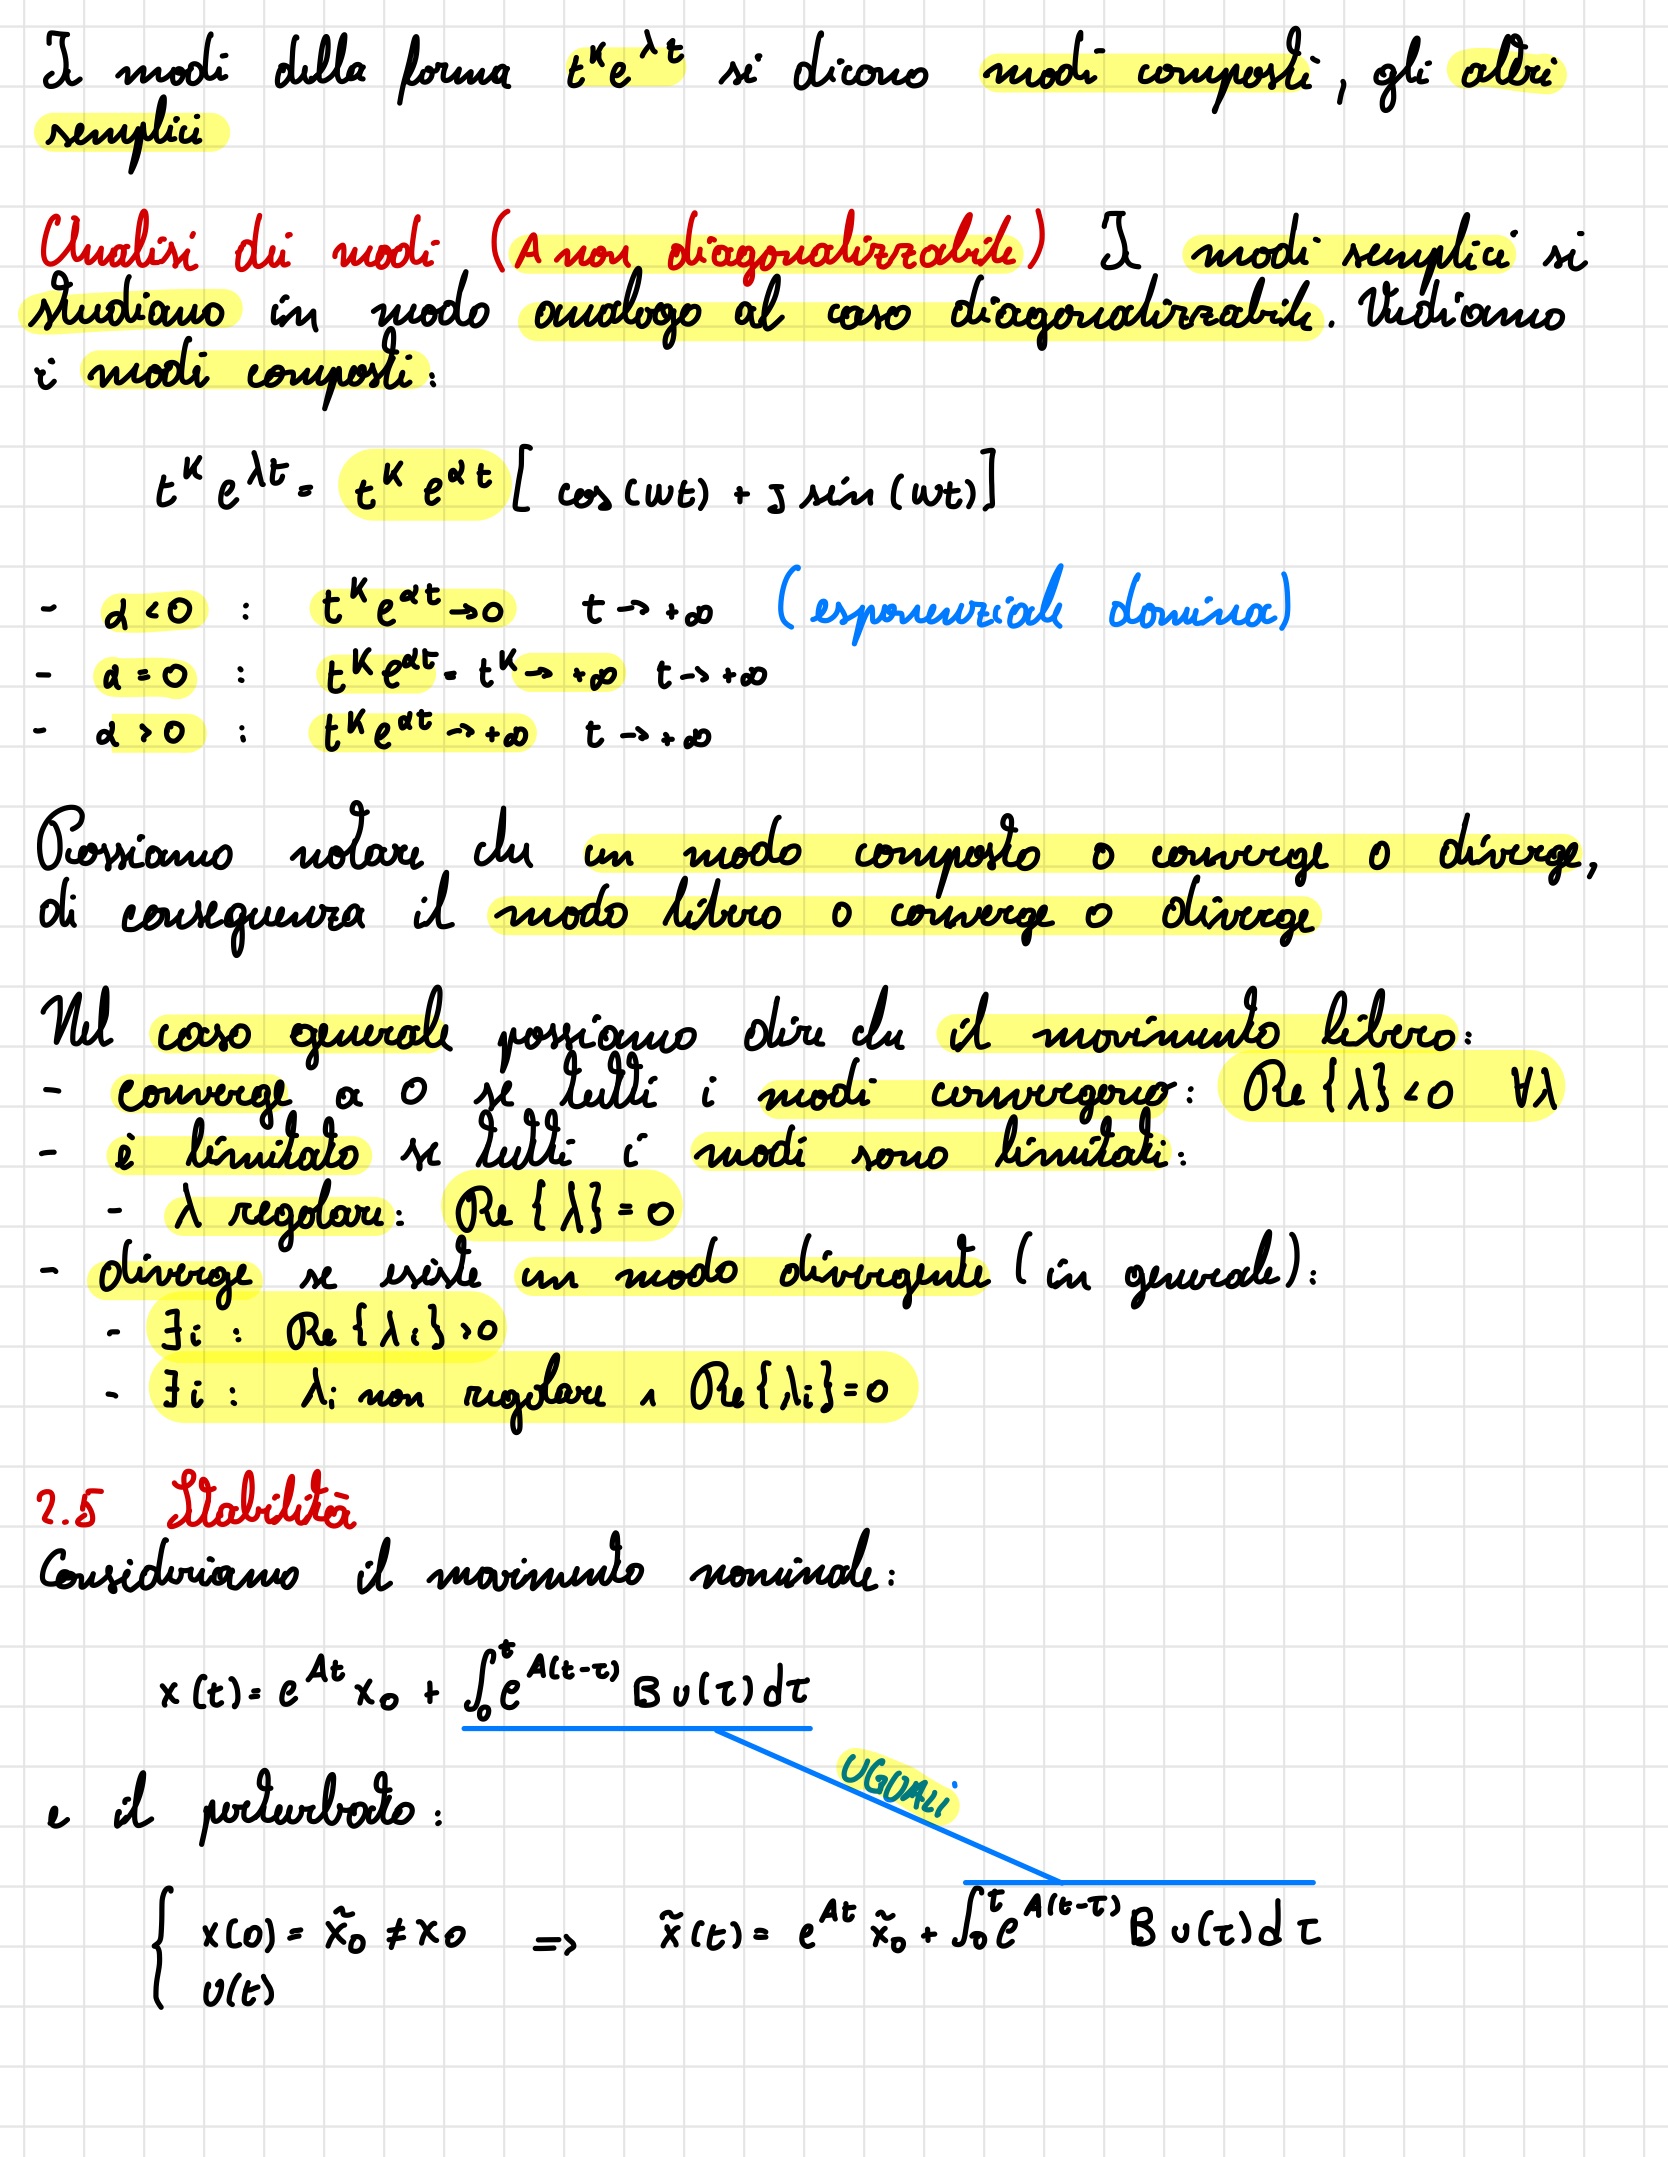 I modi della forma t^k e^{λt} si dicono modi composti, gli altri
semplici
Analisi dei modi (A non diagonalizzabile) I modi semplici si
studiano in modo analogo al caso diagonalizzabile. Vediamo
i modi composti:
t^k e^{λt} = t^k e^{αt} [cos(ωt) + J sin(ωt)]
- α < 0 : t^k e^{αt} → 0 t → +∞ (esponenziale domina)
- α = 0 : t^k e^{αt} = t^k → +∞ t → +∞
- α > 0 : t^k e^{αt} → +∞ t → +∞
Possiamo notare che un modo composto o converge o diverge,
di conseguenza il modo libero o converge o diverge
Nel caso generale possiamo dire che il movimento libero:
- converge a 0 se tutti i modi convergono: Re{λ} < 0 ∀λ
- è limitato se tutti i modi sono limitati:
- λ regolare: Re{λ} = 0
- diverge se esiste un modo divergente (in generale):
- ∃i : Re{λi} > 0
- ∃i : λi non regolare ∧ Re{λi} = 0
2.5 Stabilità
Consideriamo il movimento nominale:
x(t) = e^{At} x₀ + ∫₀^t e^{A(t-τ)} B u(τ) dτ
UGUALI
e il perturbato:
{ x(0) = x̃₀ ≠ x₀ => x̃(t) = e^{At} x̃₀ + ∫₀^t e^{A(t-τ)} B u(τ) dτ
u(t)